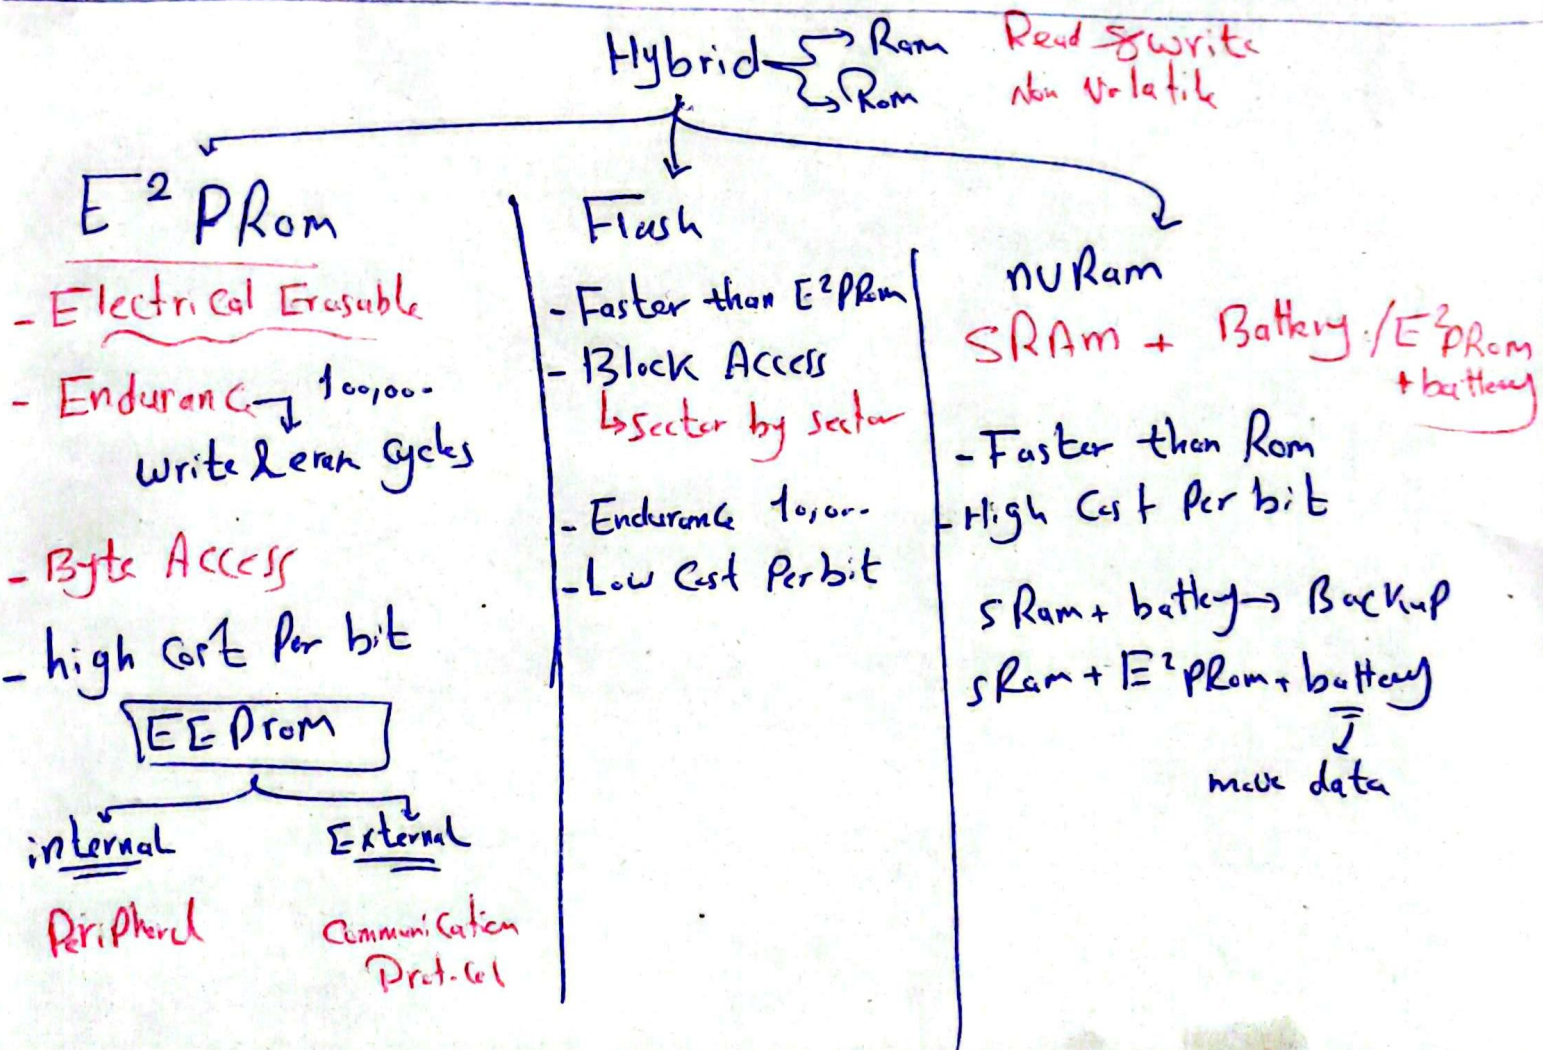 Hybrid
Ram
Rom
Read & write
Non Volatile
E² PRom
- Electrical Erasable
- Endurance 100,000
write & erase cycles
- Byte Access
- high cost Per bit
EEProm
internal
External
Peripheral
Communication
Protocol
Flash
- Faster than E²PRom
- Block Access
sector by sector
- Endurance 10,000
- Low Cost Per bit
nvRam
SRAM + Battery / E²PRom
+ battery
- Faster than Rom
- High Cost Per bit
sRam + battery → Backup
sRam + E²PRom + battery
move data